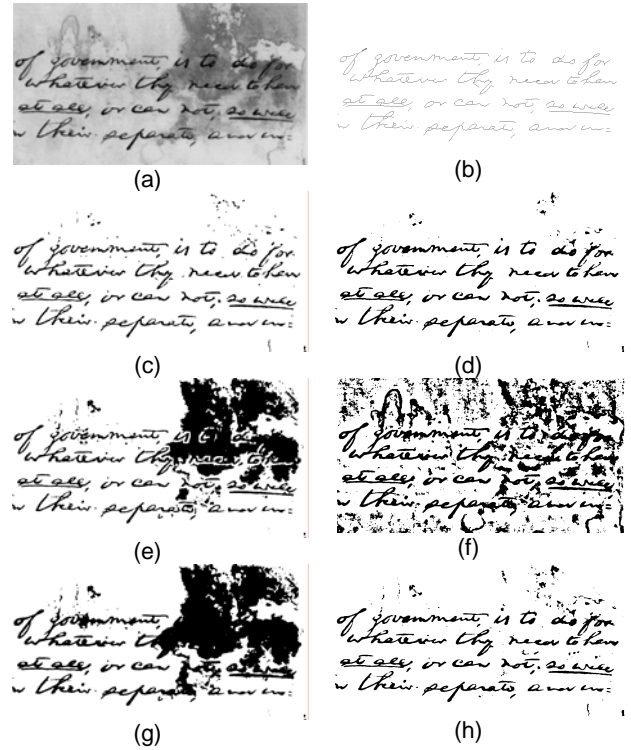 of government, is to do for
whatever they need to have
at all, or can not, so well
their separate, and in=
(a)
of government, is to do for
whatever they need to have
at all, or can not, so well
their separate, and in=
(b)
of government, is to do for
whatever they need to have
at all, or can not, so well
their separate, and in=
(c)
of government, is to do for
whatever they need to have
at all, or can not, so well
their separate, and in=
(d)
of government, is to do
whatever they need to have
at all, or can not, so well
their separate, and in=
(e)
of government, is to do for
whatever they need to have
at all, or can not, so well
their separate, and in=
(f)
of government,
whatever
at all, or can not, so well
their separate, and in=
(g)
of government, is to do for
whatever they need to have
at all, or can not, so well
their separate, and in=
(h)